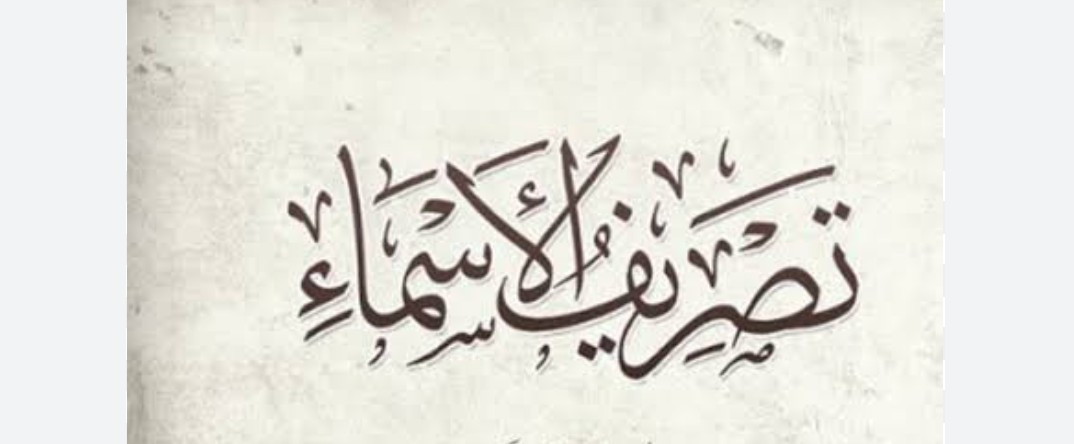 تصريف الأسماء